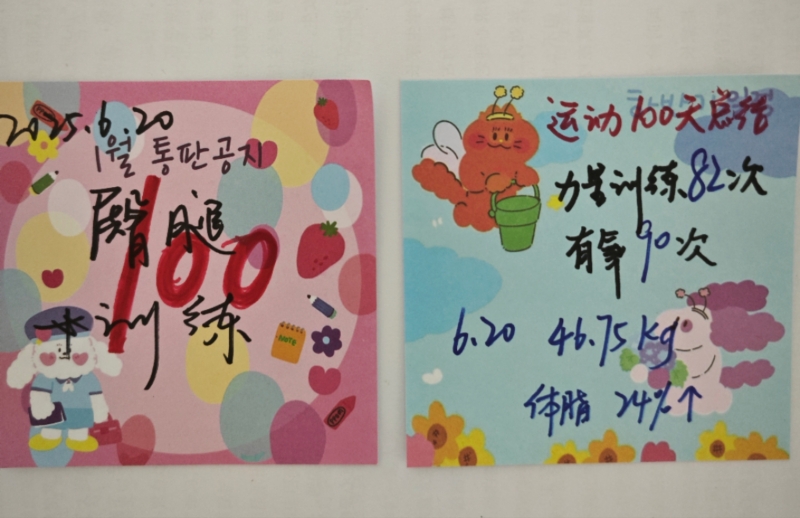 2025.6.20
1월 통판공지
臀腿
100
训练
NOTE
运动100天总结
力量训练82次
有氧90次
6.20 46.75kg
体脂 24%↑